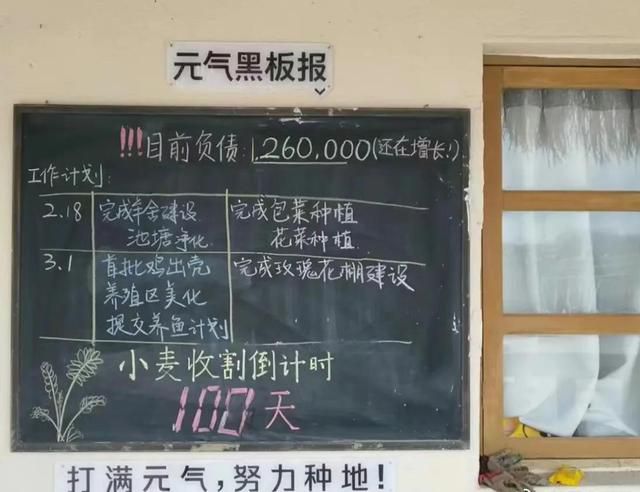 元气黑板报
!!!目前负债:1,260,000(还在增长!)
工作计划:
2.18 完成羊舍建设 完成包菜种植
池塘净化 花菜种植
3.1 首批鸡出壳 完成玫瑰花棚建设
养殖区美化
提交养鱼计划
小麦收割倒计时
100天
打满元气,努力种地!